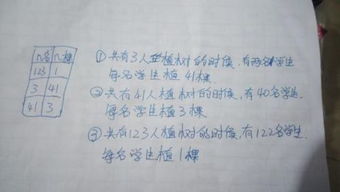 n名 n棵
123 1
3 41
41 3
① 共有3人在植树的时候,有两名学生
每名学生植 41棵
② 共有41人植树的时候,有40名学生,
每名学生植3棵
③ 共有123人植树的时候,有122名学生,
每名学生植1棵